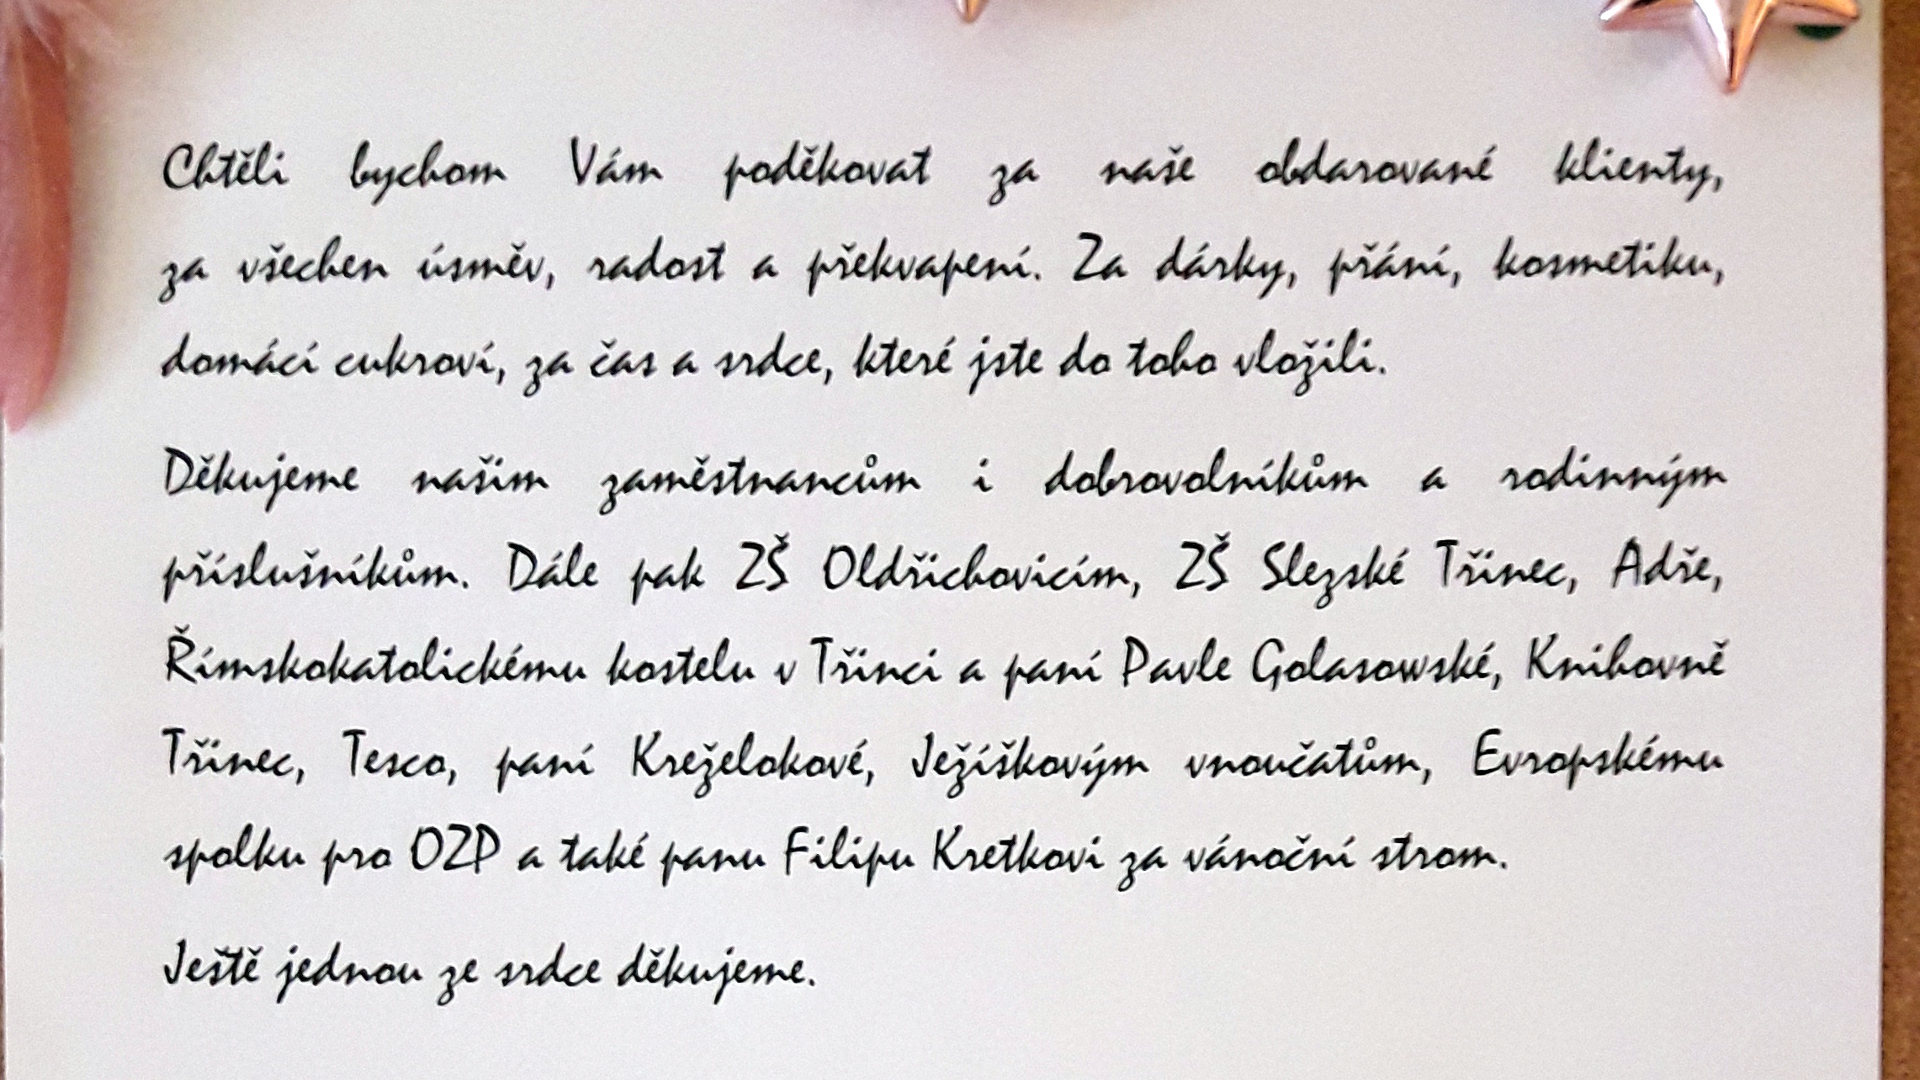 Chtěli bychom Vám poděkovat za naše obdarované klienty,
za všechen úsměv, radost a překvapení. Za dárky, přání, kosmetiku,
domácí cukroví, za čas a srdce, které jste do toho vložili.
Děkujeme našim zaměstnancům i dobrovolníkům a rodinným
příslušníkům. Dále pak ZŠ Oldřichovicím, ZŠ Slezské Třinec, Adře,
Římskokatolickému kostelu v Třinci a paní Pavle Golasowské, Knihovně
Třinec, Tesco, paní Kreželokové, Ježíškovým vnoučatům, Evropskému
spolku pro OZP a také panu Filipu Kretkovi za vánoční strom.
Ještě jednou ze srdce děkujeme.